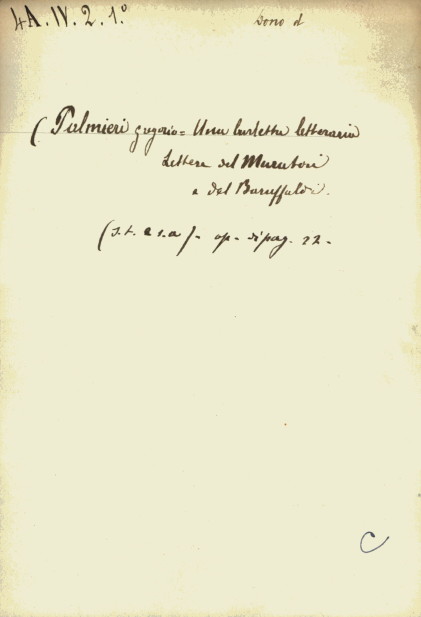 4A.IV.2.1.º
Dono d
(Palmieri gregorio = Una burletta letteraria
Lettere del Muratori
e del Baruffaldi.
(s.t. e s.a) - op - di pag. 22 -
C